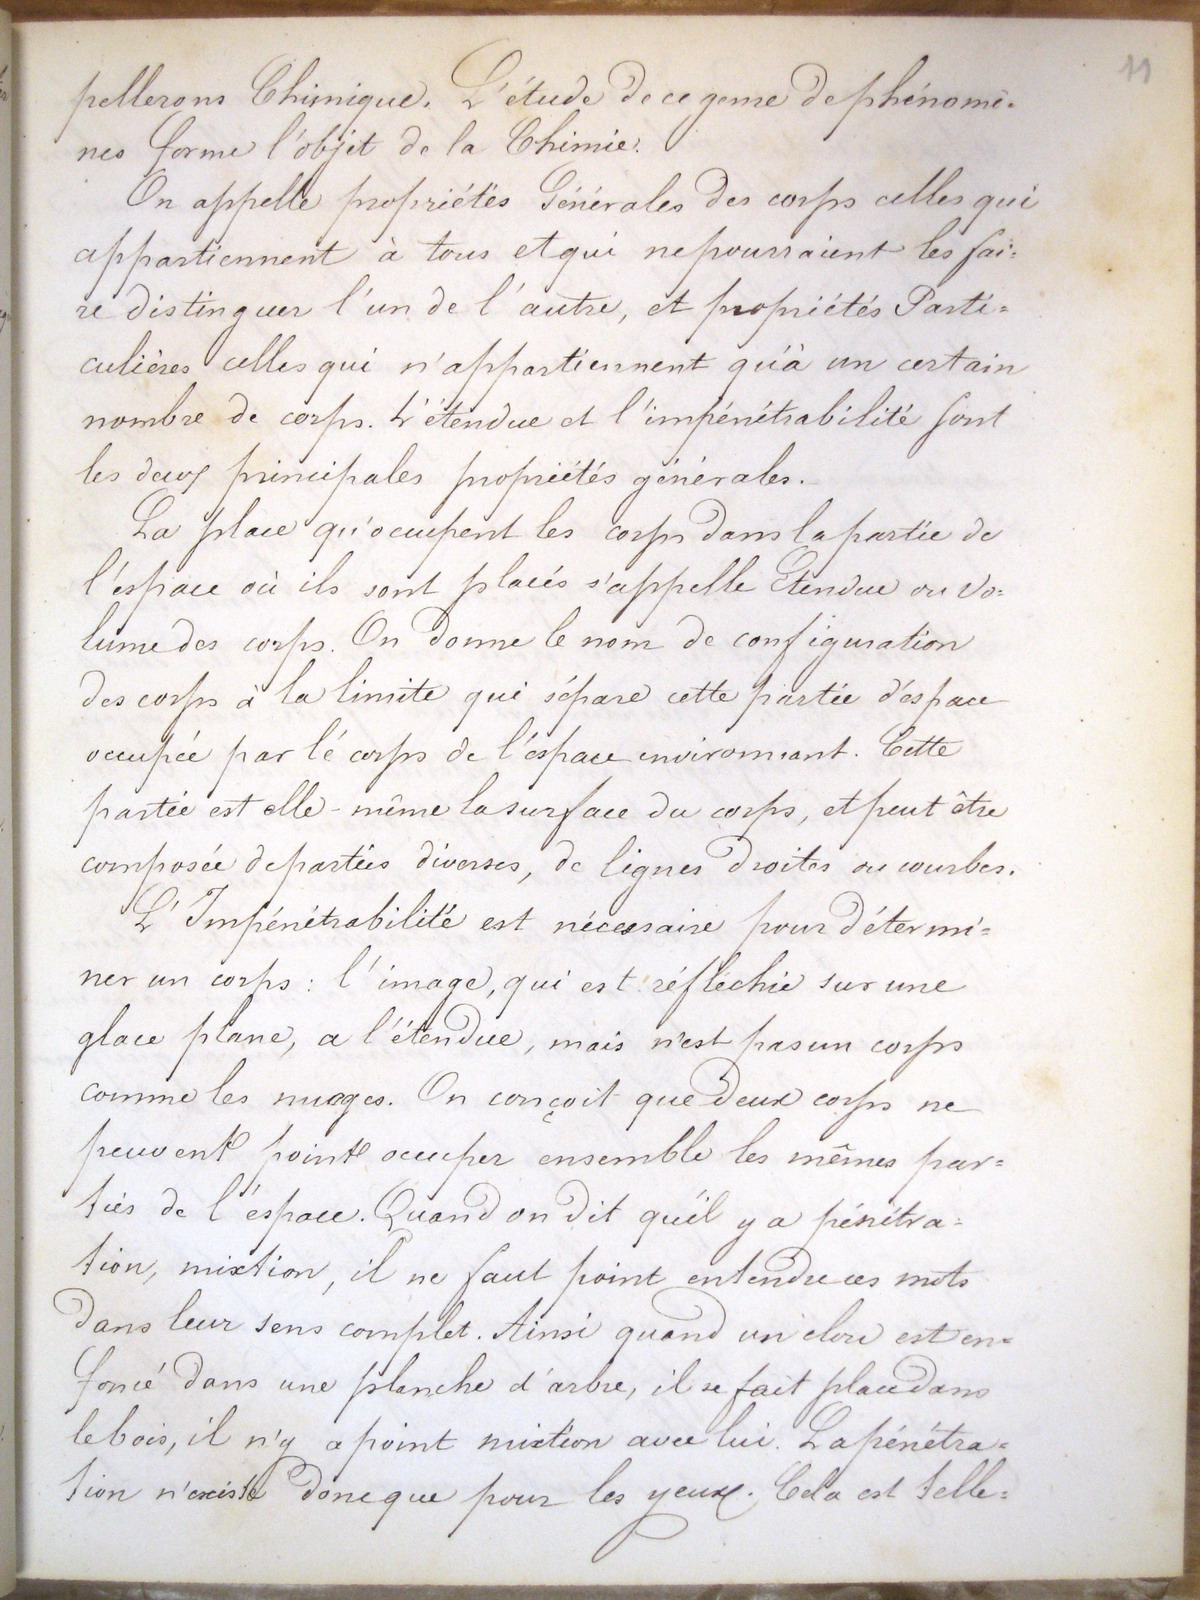 11
pellerons Chimique. L'étude de ce genre de phénomè-
nes forme l'objet de la Chimie.
On appelle propriétés Générales des corps celles qui
appartiennent à tous et qui ne pourraient les fai=
re distinguer l'un de l'autre, et propriétés Parti=
culières celles qui n'appartiennent qu'à un certain
nombre de corps. L'étendue et l'impénétrabilité sont
les deux principales propriétés générales.
La place qu'occupent les corps dans la partie de
l'éspace où ils sont placés s'appelle Etendue ou Vo=
lume des corps. On donne le nom de configuration
des corps à la limite qui sépare cette partie d'éspace
occupée par lé corps de l'éspace environnant. Cette
partie est elle-même la surface du corps, et peut être
composée de parties diverses, de lignes droites ou courbes.
L'Impénétrabilité est nécessaire pour détermi=
ner un corps : l'image, qui est réfléchie sur une
glace plane, a l'étendue, mais n'est pas un corps
comme les nuages. On conçoit que deux corps ne
peuvent point occuper ensemble les mêmes par=
ties de l'éspace. Quand on dit qu'il y a pénétra=
tion, mixtion, il ne faut point entendre ces mots
dans leur sens complet. Ainsi quand un clou est en=
foncé dans une planche d'arbre, il se fait place dans
le bois, il n'y a point mixtion avec lui. La pénétra=
tion n'existe donc que pour les yeux. Cela est telle=